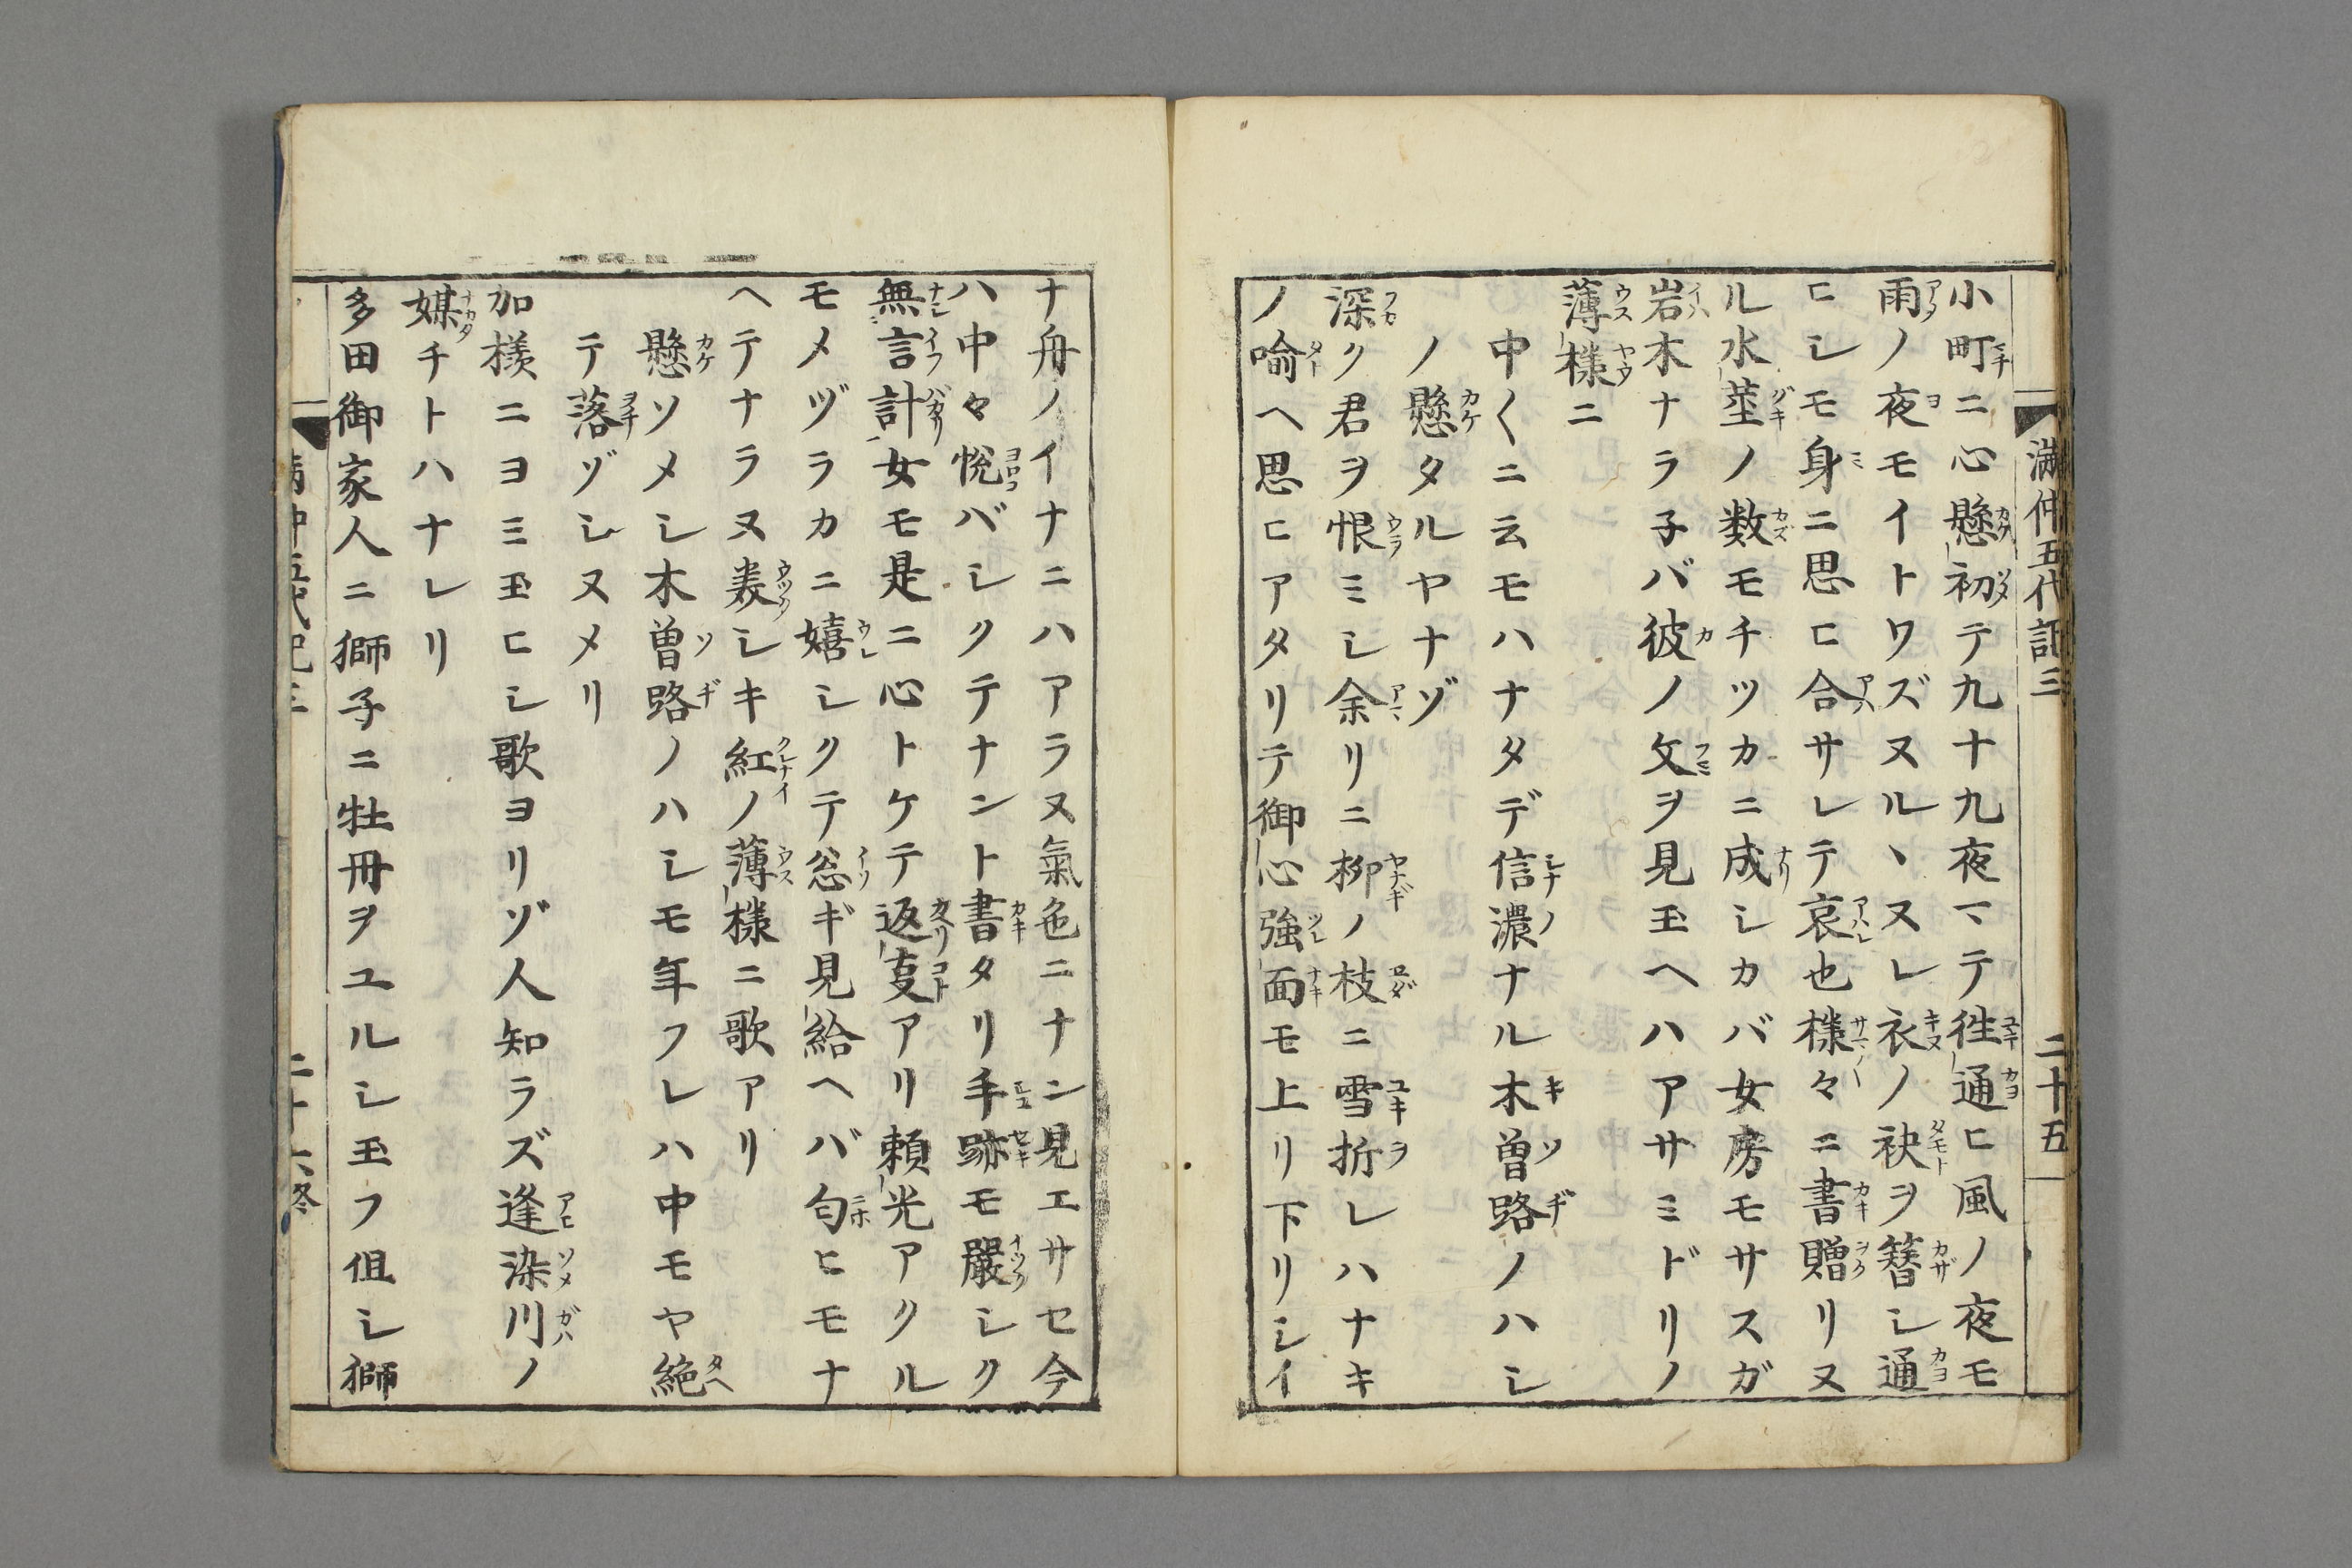 満仲五代記三 二十五
小町ニ心懸初テ九十九夜マテ徃通ヒ風ノ夜モ
雨ノ夜モイトワズヌルヽヌレ衣ノ袂ヲ簪シ通
ヒシモ身ニ思ヒ合サレテ哀也様々ニ書贈リヌ
ル水莖ノ数モチツカニ成シカバ女房モサスガ
岩木ナラ子バ彼ノ文ヲ見玉ヘハアサミドリノ
薄様ニ
中〱ニ云モハナタデ信濃ナル木曽路ノハシ
ノ懸タルヤナゾ
深ク君ヲ恨ミシ余リニ柳ノ枝ニ雪折レハナキ
ノ喩ヘ思ヒアタリテ御心強面モ上リ下リシイ
ナ舟ノイナニハアラヌ氣色ニナン見エサセ今
ハ中々悦バシクテナント書タリ手跡モ嚴シク
無言計女モ是ニ心トケテ返夏アリ頼光アクル
モメヅラカニ嬉シクテ忩ギ見給ヘバ匂ヒモナ
ヘテナラヌ羙シキ紅ノ薄様ニ歌アリ
懸ソメシ木曽路ノハシモ年フレハ中モヤ絶
テ落ゾシヌメリ
加様ニヨミ玉ヒシ歌ヨリゾ人知ラズ逢染川ノ
媒チトハナレリ
多田御家人ニ獅子ニ牡冊ヲユルシ玉フ伹シ獅
二十六 冬